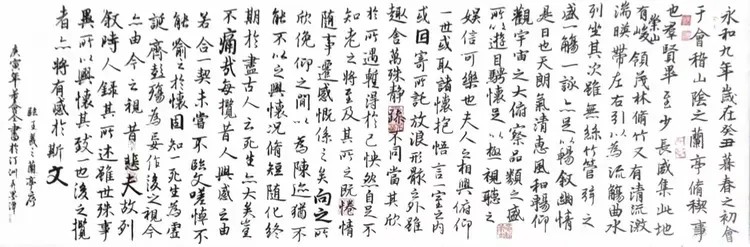 永和九年歲在癸丑暮春之初會
于會稽山陰之蘭亭脩稧事
也群賢畢至少長咸集此地
有崇山峻領茂林脩竹又有清流激
湍暎帶左右引以為流觴曲水
列坐其次雖無絲竹管弦之
盛一觴一詠亦足以暢敘幽情
是日也天朗氣清惠風和暢仰
觀宇宙之大俯察品類之盛
所以遊目騁懷足以極視聽之
娛信可樂也夫人之相與俯仰
一世或取諸懷抱悟言一室之內
或因寄所託放浪形骸之外雖
趣舍萬殊靜躁不同當其欣
於所遇暫得於己怏然自足不
知老之將至及其所之既惓情
隨事遷感慨係之矣向之所
欣俛仰之間以為陳迹猶不
能不以之興懷況脩短隨化終
期於盡古人云死生亦大矣豈
不痛哉每攬昔人興感之由
若合一契未嘗不臨文嗟悼不
能喻之於懷固知一死生為虛
誕齊彭殤為妄作後之視今
亦由今之視昔悲夫故列
敘時人錄其所述雖世殊事
異所以興懷其致一也後之攬
者亦將有感於斯文
臨王羲之蘭亭序
庚寅年書於汀洲